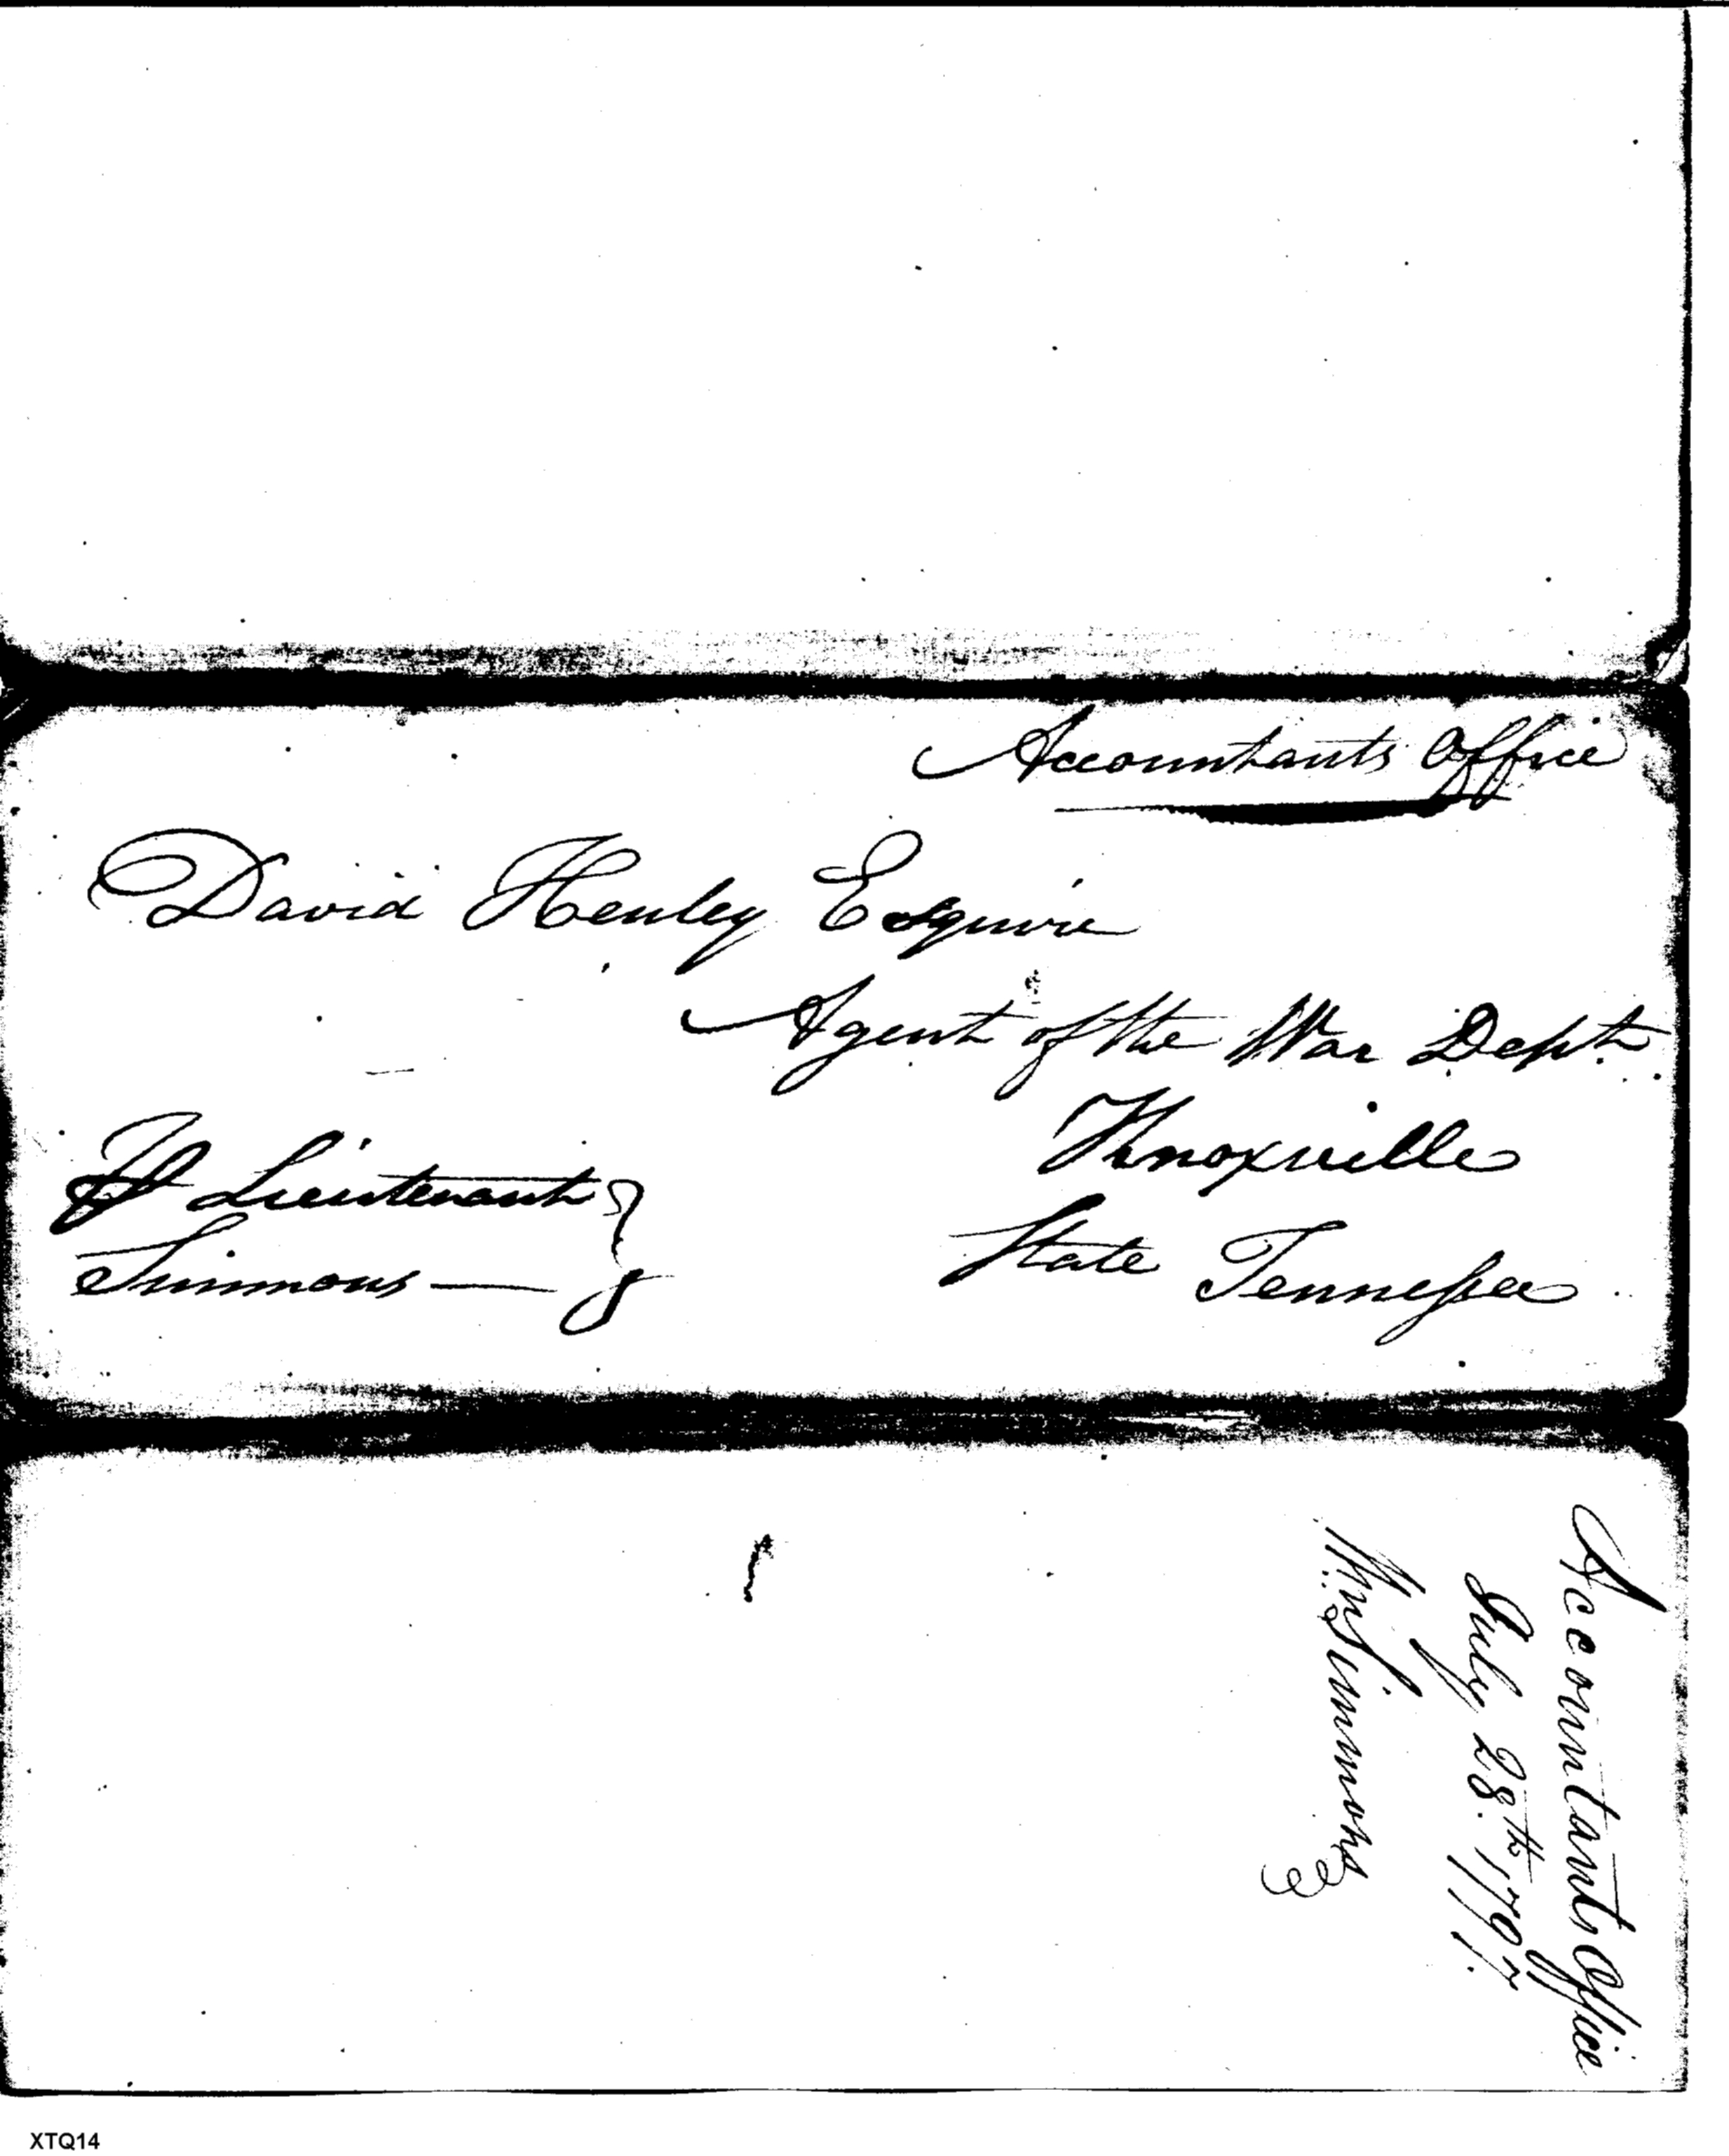 Accountants Office
David Henley Esquire
Agent of the War Dept.
Knoxville
State Tennessee
Lieutenant
Simmons
Accountants Office
July 28th. 1797.
Wm Simmons
XTQ14